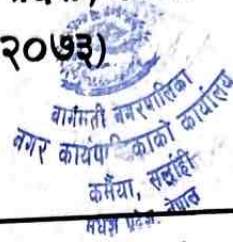 २०७३)
बागमती नगरपालिका
नगर कार्यपालिकाको कार्यालय
कर्मैया, सर्लाही
मधेश प्रदेश, नेपाल